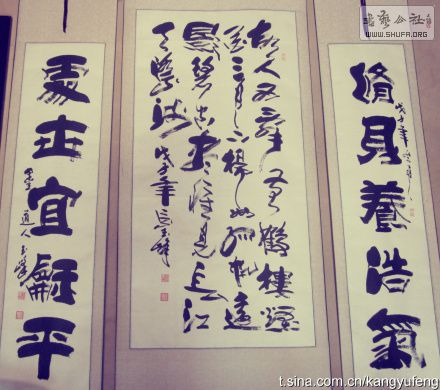 書藝公社
WWW.SHUFA.ORG
脩身養浩氣
戊子年
故人西辭黃鶴樓煙
花三月下揚州孤帆遠
影碧空盡唯見長江
天際流 戊子年
處世宜龢平
道人
t.sina.com.cn/kangyufeng